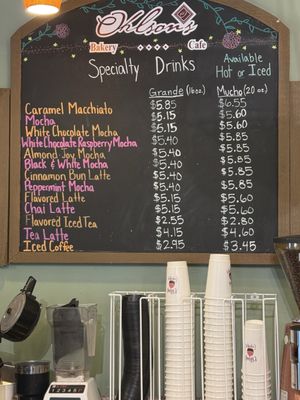 Ohlson's
Bakery Cafe
Specialty Drinks
Available
Hot or Iced
Grande (16oz.) Mucho (20 oz)
Caramel Macchiato $5.85 $6.55
Mocha $5.15 $5.60
White Chocolate Mocha $5.15 $5.60
White Chocolate Raspberry Mocha $5.40 $5.85
Almond Joy Mocha $5.40 $5.85
Black & White Mocha $5.40 $5.85
Cinnamon Bun Latte $5.40 $5.85
Peppermint Mocha $5.40 $5.85
Flavored Latte $5.15 $5.60
Chai Latte $5.15 $5.60
Flavored Iced Tea $2.55 $2.80
Tea Latte $4.15 $4.60
Iced Coffee $2.95 $3.45